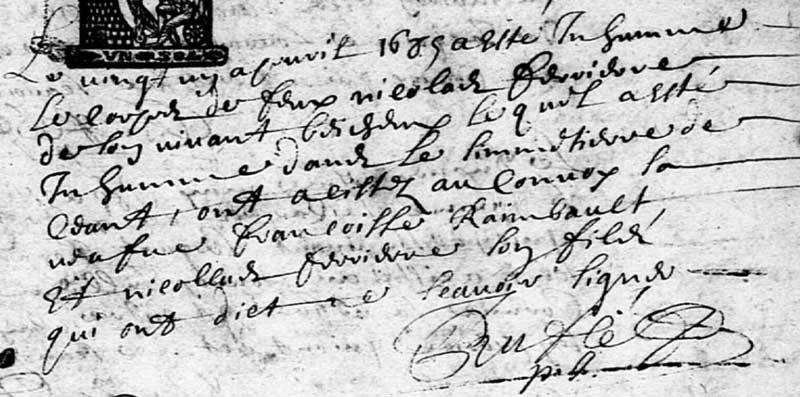 UN SOL
Le vingt un apvril 1685 a esté Inhumme
le corps de feux nicolas ferriere
de son vivant bescheux lequel a esté
Inhumme dans le simmetierre de
ceant, ont assistez au Convoy sa
veafue francoisse Raimbault,
Et nicollas ferriere son fils
qui ont dict ne scavoir signer